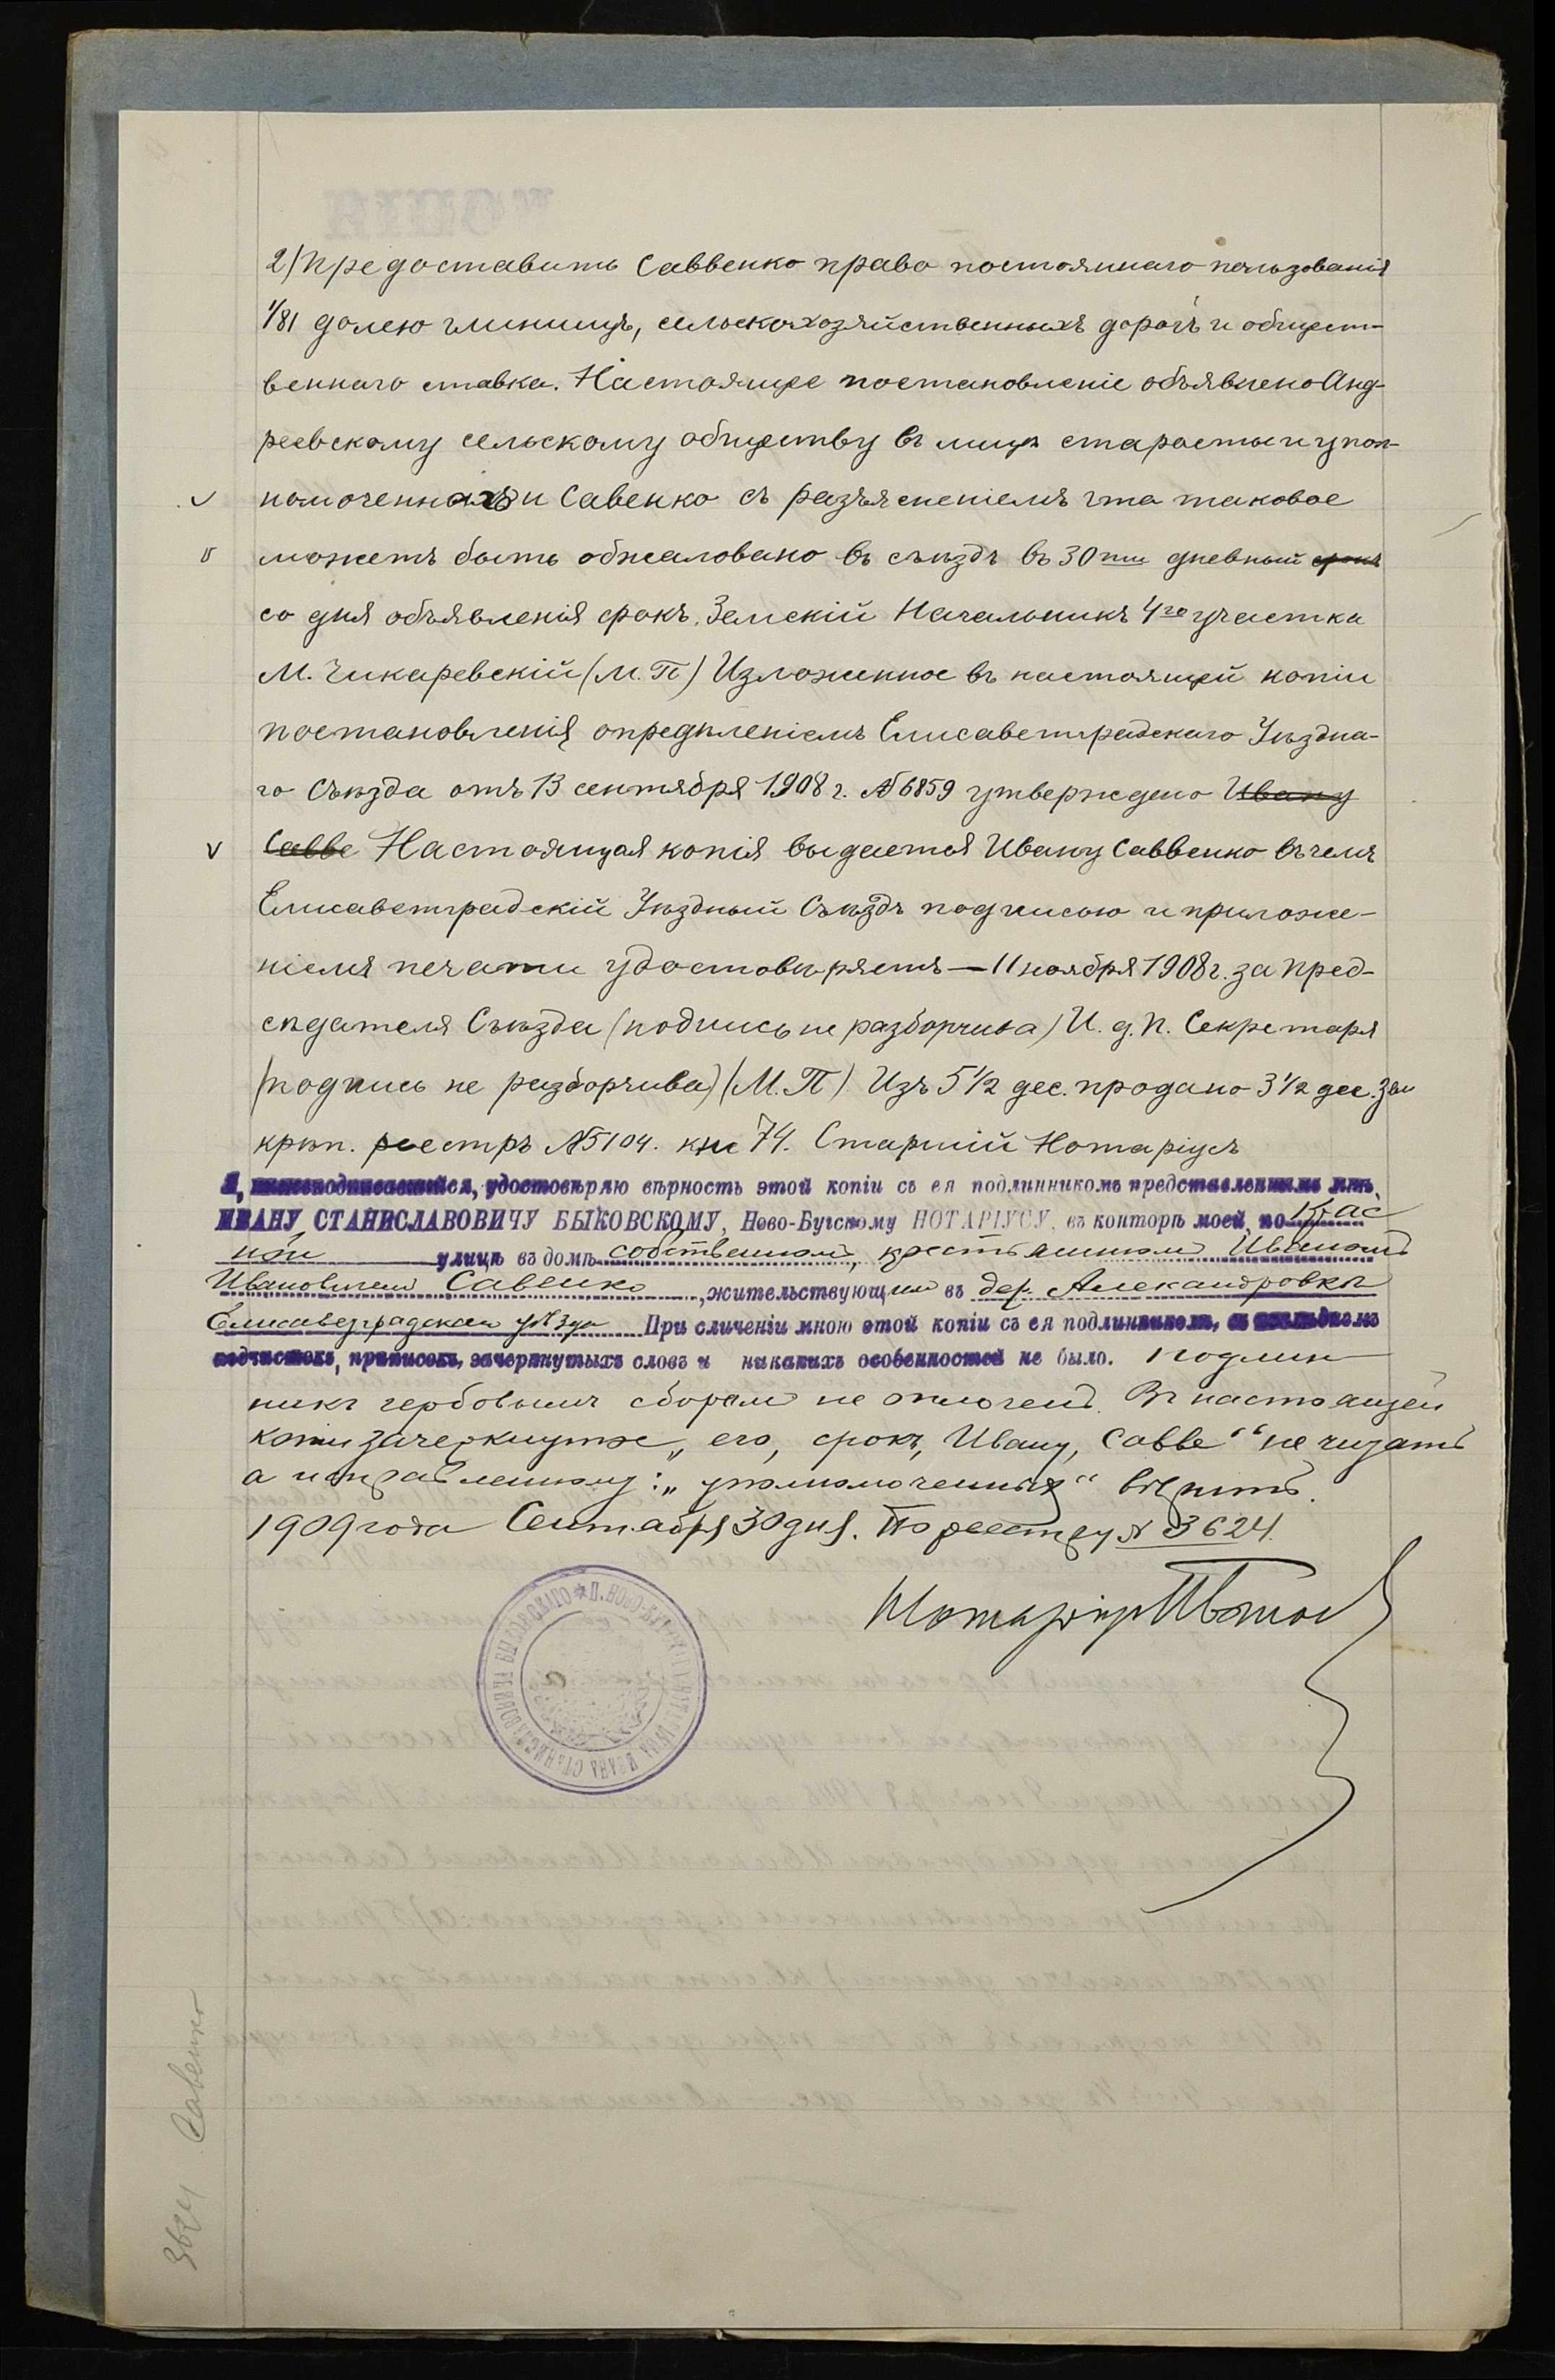 2) Предоставить Саввенко право постояннаго пользованія
1/81 долею глинищъ, сельскохозяйственныхъ дорогъ и общест-
веннаго ставка. Настоящее постановленіе объявлено Анд-
реевскому сельскому обществу въ лицѣ старосты и упол-
номоченныхъ и Савенко съ разъясненіемъ что таковое
можетъ быть обжаловано въ съѣздъ въ 30ти дневный срокъ
со дня объявленія срокъ. Земскій Начальникъ 4го участка
М. Чикаревскій (М.П) Изложенное въ настоящей копіи
постановленія опредѣленіемъ Елисаветградскаго Уѣздна-
го Съѣзда отъ 13 сентября 1908 г. № 6859 утверждено Ивану
Савве Настоящая копія выдается Ивану Саввенко въ чемъ
Елисаветградскій Уѣздный Съѣздъ подписью и приложе-
ніемъ печати удостовѣряетъ — 11 ноября 1908 г. за Пред-
сѣдателя Съѣзда (подпись не разборчива) И. д. п. Секретаря
(подпись не разборчива) (М.П) Изъ 5 1/2 дес. продано 3 1/2 дес.
крѣп. реестръ № 5104. кн 74. Старшій Нотаріусъ
Я, нижеподписавшійся, удостовѣряю вѣрность этой копіи съ ея подлинникомъ представленнымъ мнѣ,
ИВАНУ СТАНИСЛАВОВИЧУ БЫКОВСКОМУ, Ново-Бугскому НОТАРІУСУ, въ конторѣ моей, по
ной улицѣ въ домѣ собственномъ, крестьяниномъ Иваномъ
Ивановичемъ Савенко, жительствующимъ въ дер. Александровкѣ
Елисаветградскаго уѣзда При сличеніи мною этой копіи съ ея подлинникомъ, въ послѣднемъ
подчистокъ, приписокъ, зачеркнутыхъ словъ и никакихъ особенностей не было. Подлин
никъ гербовымъ сборомъ не оплаченъ. Въ настоящей
копіи зачеркнутое „его, срокъ, Ивану, Савве“ не читать
а исправленному: „уполномоченныхъ“ вѣрить.
1909 года Сентября 30 дня. По реестру № 3624.
Нотаріусъ
3624 Савенко